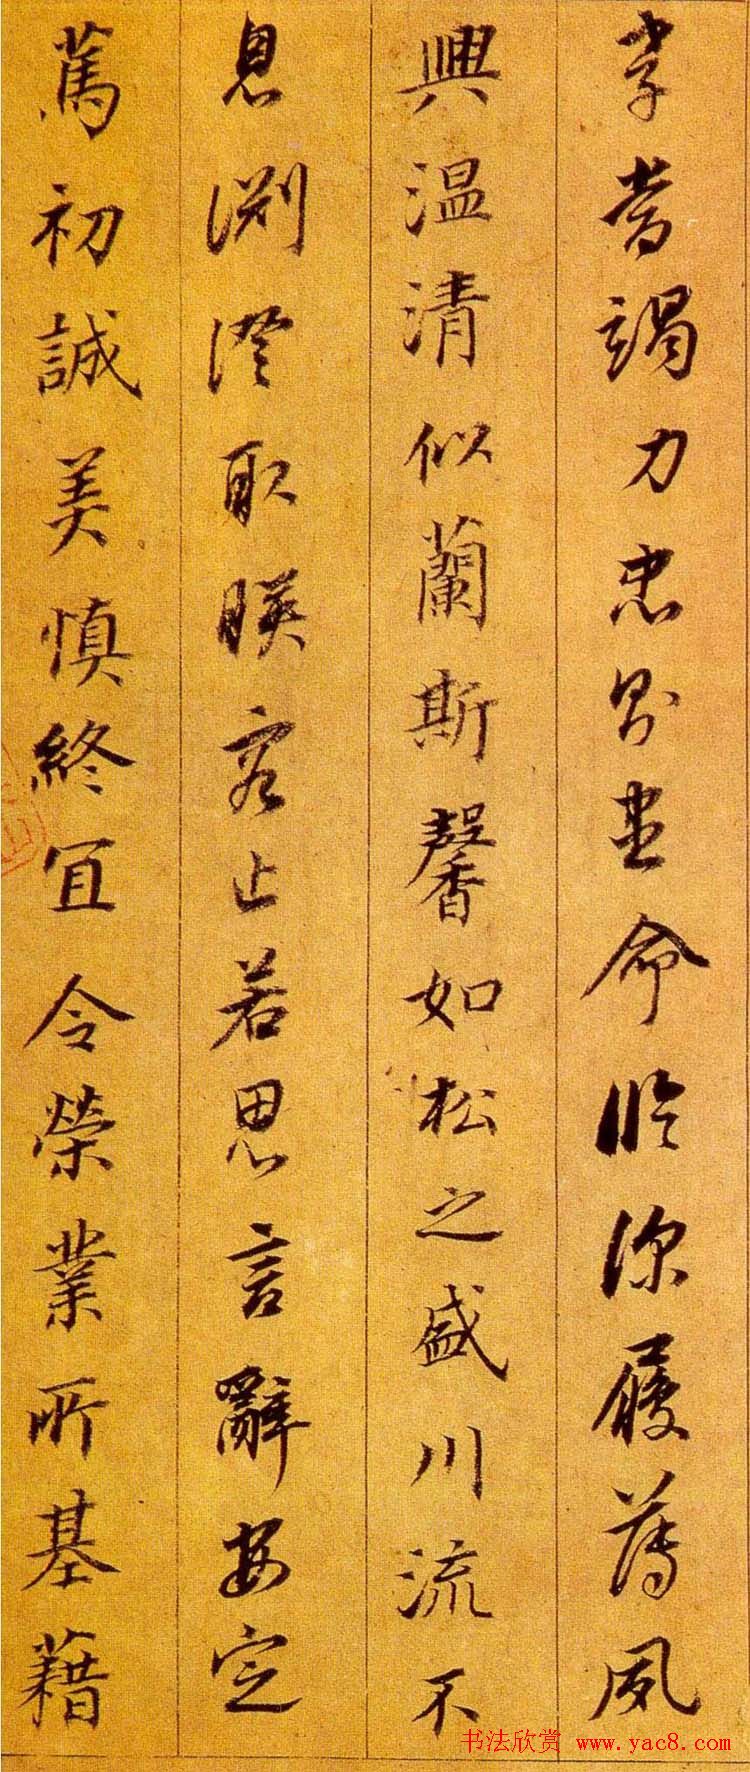 孝當竭力忠則盡命臨深履薄夙
興温清似蘭斯馨如松之盛川流不
息淵澄取暎容止若思言辭安定
篤初誠美慎終宜令榮業所基藉
书法欣赏 www.yac8.com